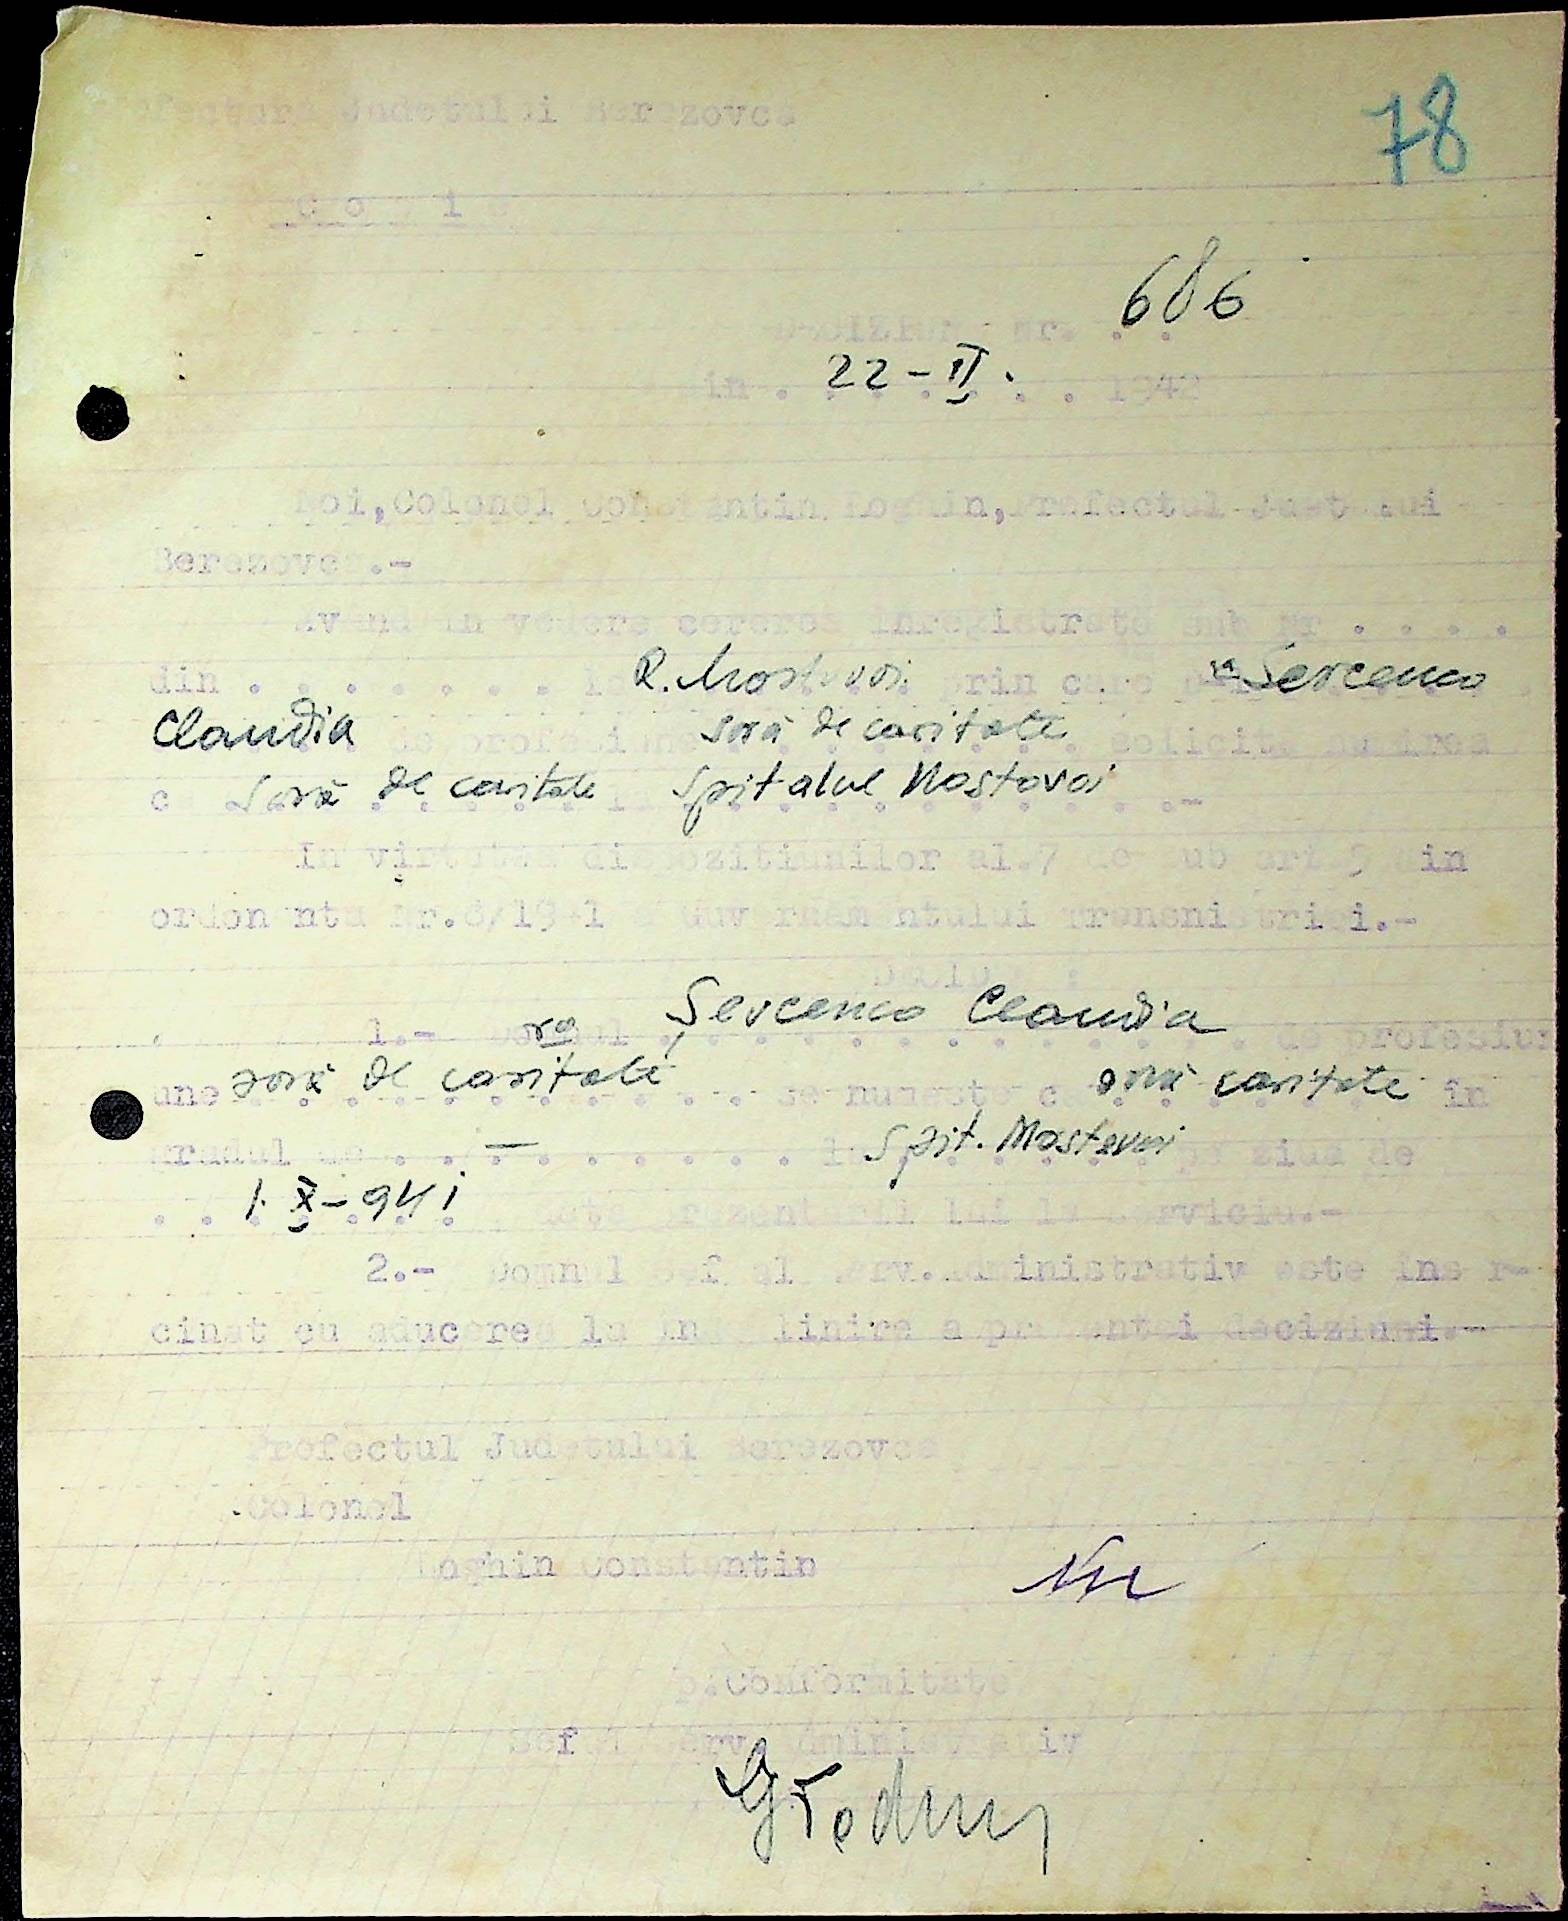 78
Prefectura Judetului Berezovca
C o p i e
Deciziune Nr. . . 686
din . 22 - II . . . 1942
Noi,Colonel Constantin Loghin,Prefectul Judetului
Berezovca.-
Avand in vedere cererea inregistrata sub Nr . . . .
din . . . . . . . . la R. Mostovoi prin care Sevcenco
Claudia de profesiune soră de caritate solicita numirea
ca Soră de caritate la Spitalul Mostovoi .-
In virtutea dispozitiunilor al.7 de sub art.5 din
ordonanta Nr.8/1941 a Guvernamentului Transnistriei.-
Decidem :
1.- Domnul ra Șevcenco Claudia de profesiu
une soră de caritate se numeste ca soră caritate in
gradul de . . — . . . . . . la Spit. Mostovoi pe ziua de
1. X - 941 data prezentarii lui la serviciu.-
2.- Domnul Sef al Serv.Administrativ este insar-
cinat cu aducerea la indeplinire a prezentei deciziuni.-
Prefectul Judetului Berezovca
Colonel
Loghin Constantin
p.Conformitate
Seful Serv. Administrativ